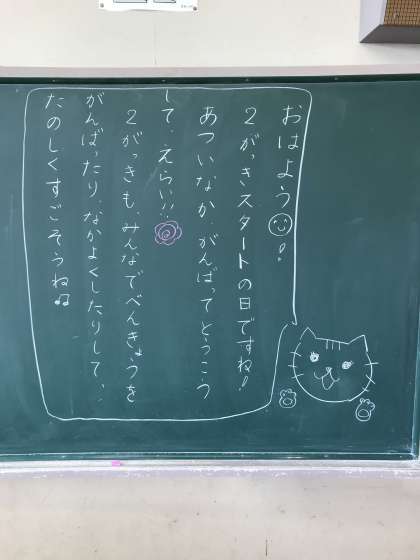 おはよう!
2がっきスタートの日ですね!
あついなか、がんばってとうこう
して、えらい!!
2がっきも、みんなでべんきょうを
がんばったり、なかよくしたりして、
たのしくすごそうね♫